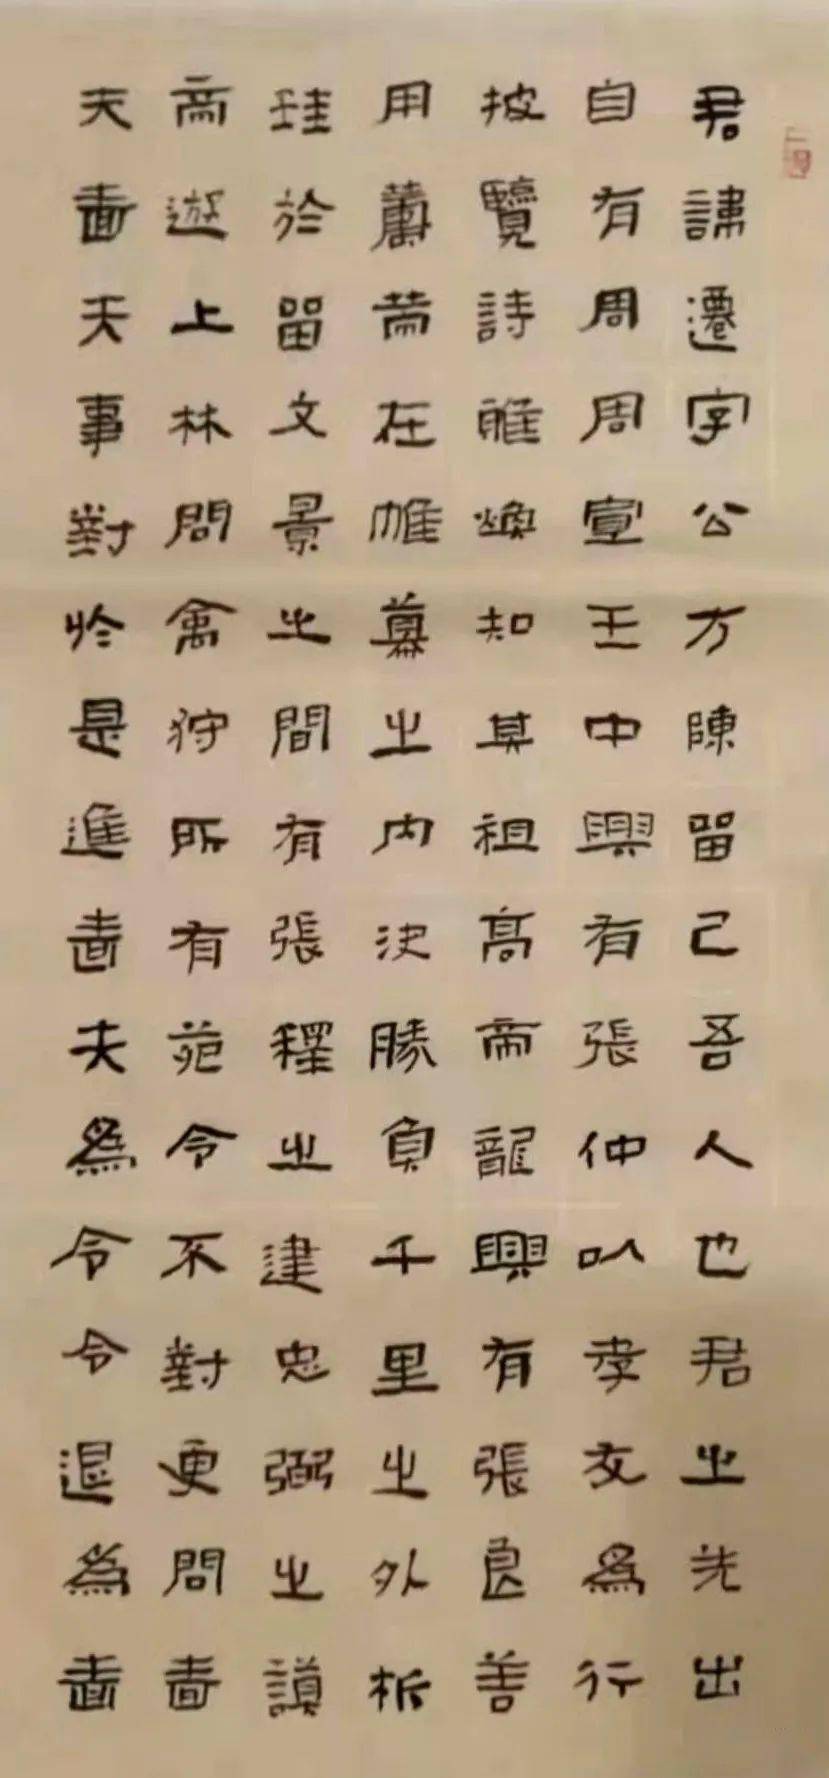 君諱遷字公方陳留己吾人也君之先出
自有周周宣王中興有張仲以孝友為行
披覽詩雅煥知其祖高帝龍興有張良善
用籌策在帷幕之內決勝負千里之外析
珪於留文景之間有張釋之建忠弼之謨
帝遊上林問禽狩所有苑令不對更問嗇
夫嗇夫事對於是進嗇夫為令令退為嗇